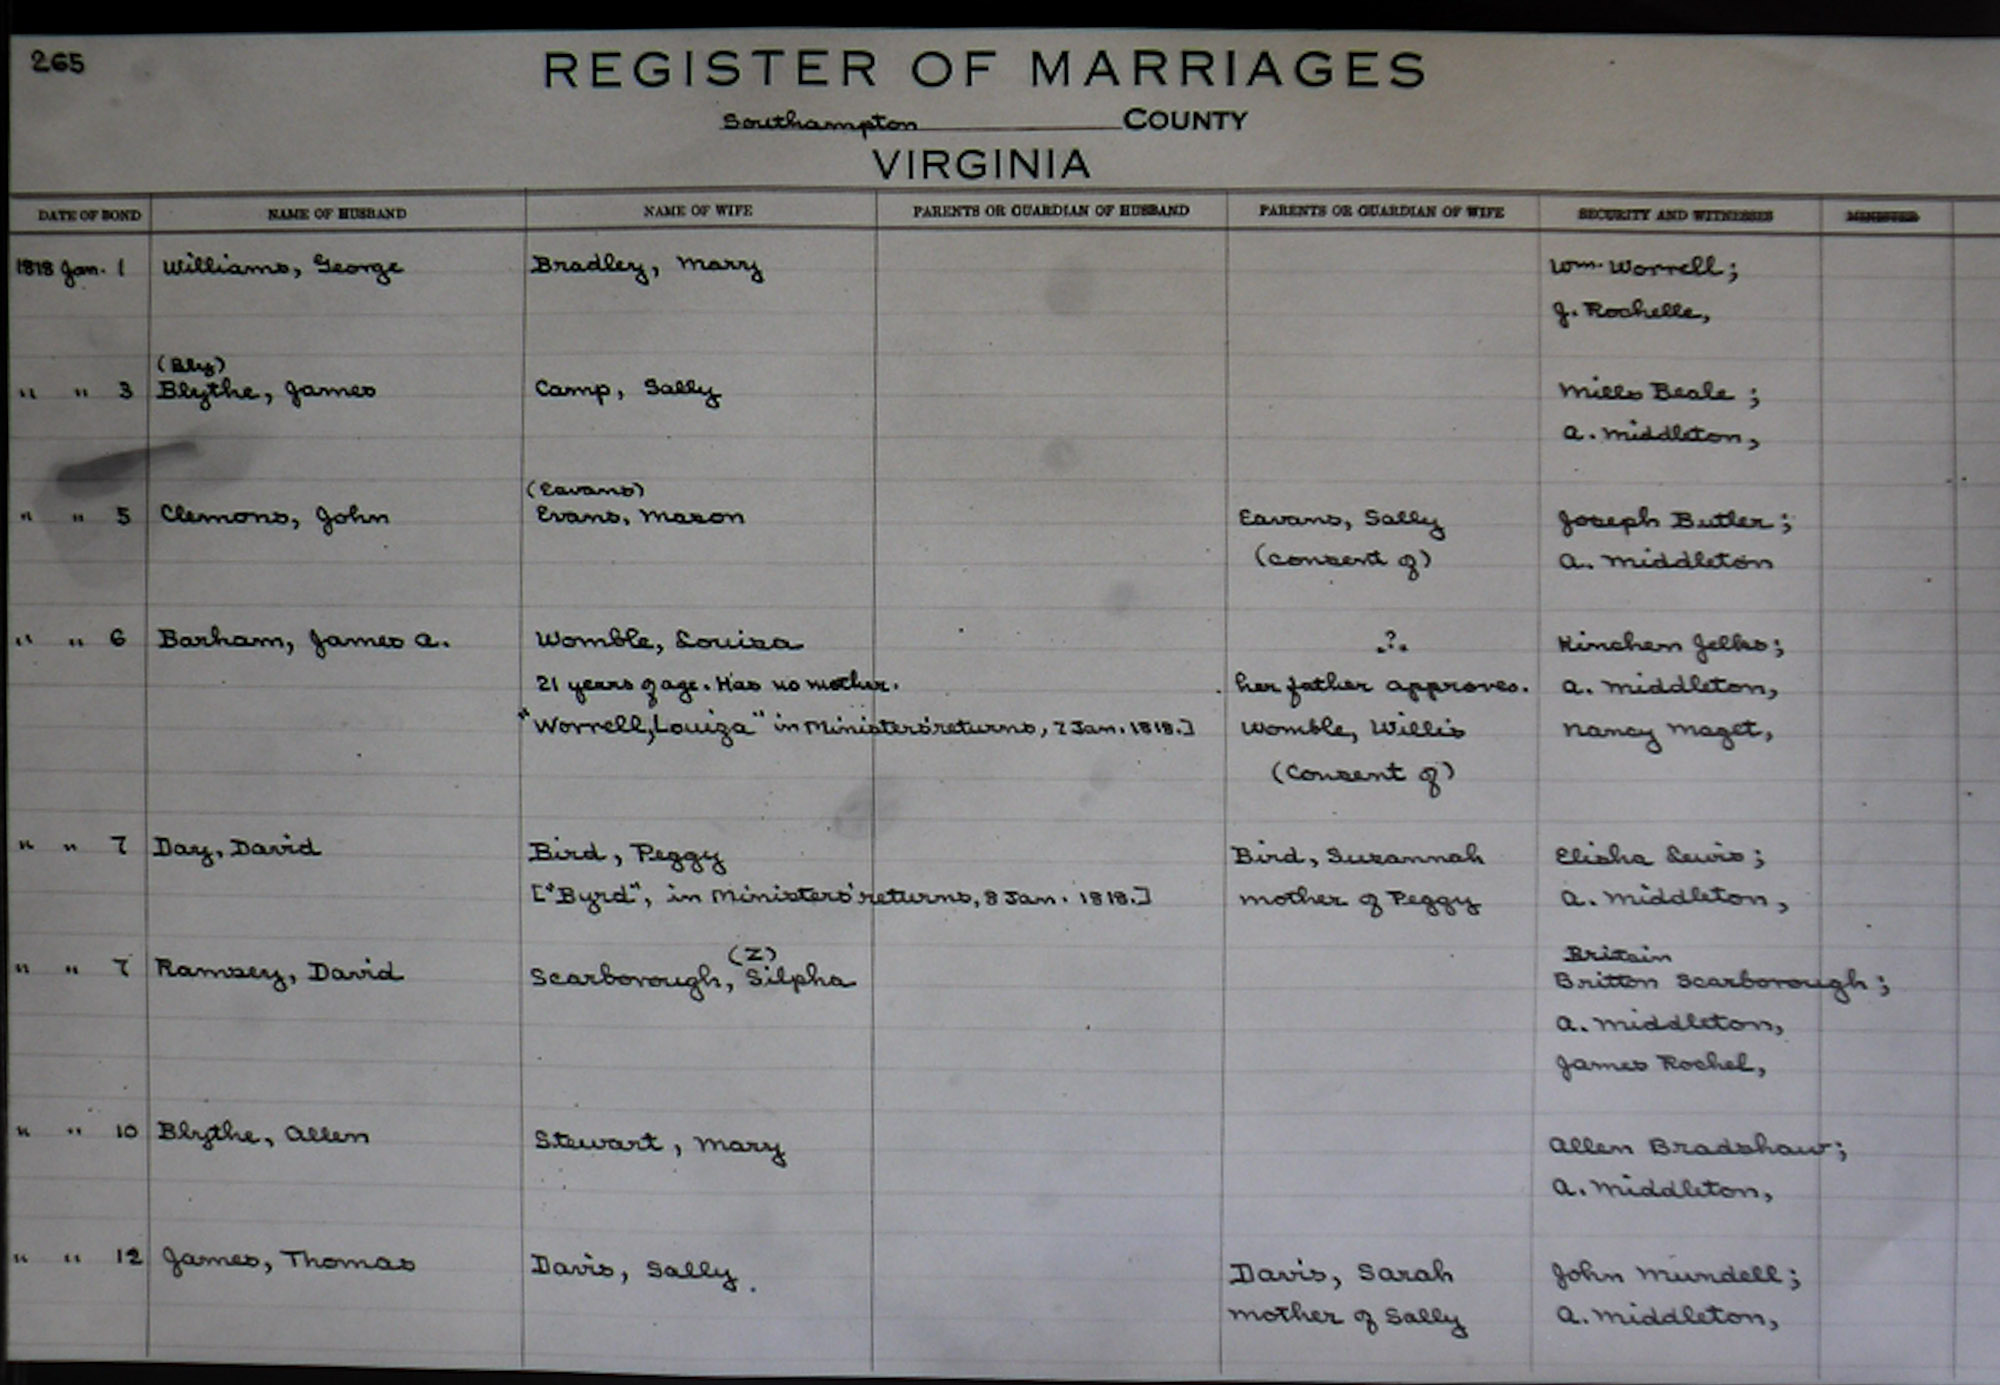 265
REGISTER OF MARRIAGES
Southampton COUNTY
VIRGINIA
DATE OF BOND NAME OF HUSBAND NAME OF WIFE PARENTS OR GUARDIAN OF HUSBAND PARENTS OR GUARDIAN OF WIFE SECURITY AND WITNESSES MINISTER
1818 Jan. 1 Williams, George Bradley, Mary Wm. Worrell;
J. Rochelle,
(Bly)
" " 3 Blythe, James Camp, Sally Mills Beale;
A. Middleton,
(Eavans)
" " 5 Clemons, John Evans, Mason Eavans, Sally Joseph Butler;
(consent of) A. Middleton
" " 6 Barham, James A. Womble, Louisa .?. Kinchen Jelks;
21 years of age. Has no mother. her father approves. A. Middleton,
"Worrell, Louiza" in Ministers' returns, 7 Jan. 1818.] Womble, Willis Nancy Maget,
(Consent of)
" " 7 Day, David Bird, Peggy Bird, Suzannah Elisha Lewis;
["Byrd", in Ministers' returns, 8 Jan. 1818.] mother of Peggy A. Middleton,
(Z) Britain
" " 7 Ramsey, David Scarborough, Silpha Britton Scarborough;
A. Middleton,
James Rochel,
" " 10 Blythe, Allen Stewart, Mary Allen Bradshaw;
A. Middleton,
" " 12 James, Thomas Davis, Sally. Davis, Sarah John Mundell;
mother of Sally A. Middleton,